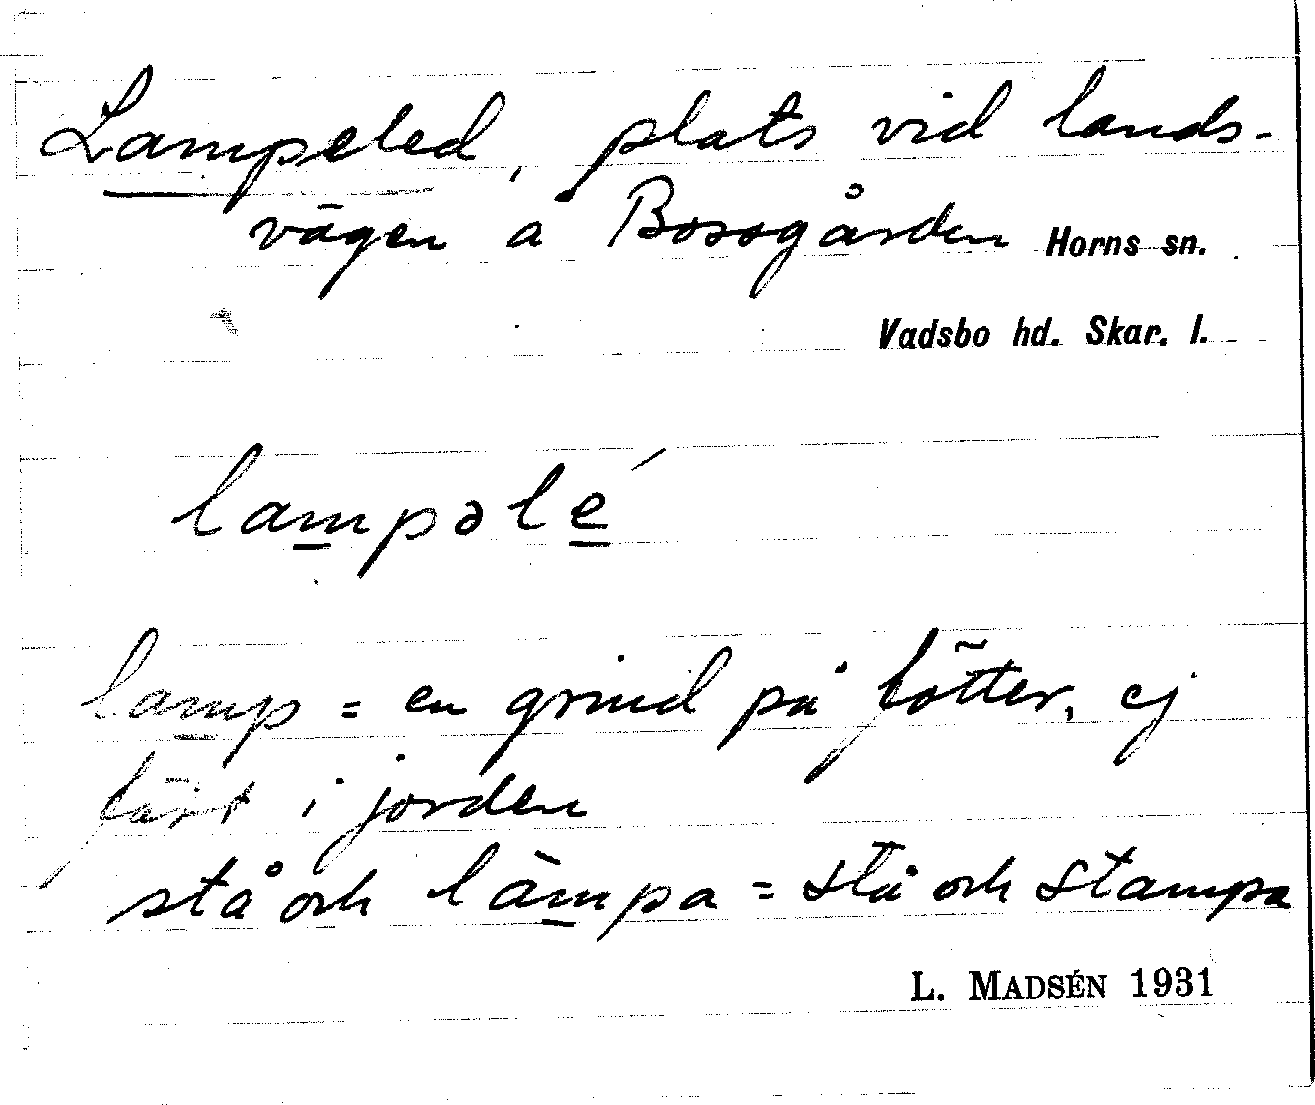 Lampeled, plats vid lands-
vägen å Bossgården Horns sn.
Vadsbo hd. Skar. l.
lampəlé
lamp = en grind på fötter, ej
fäst i jorden
stå och lämpa = stå och stampa
L. MADSÉN 1931